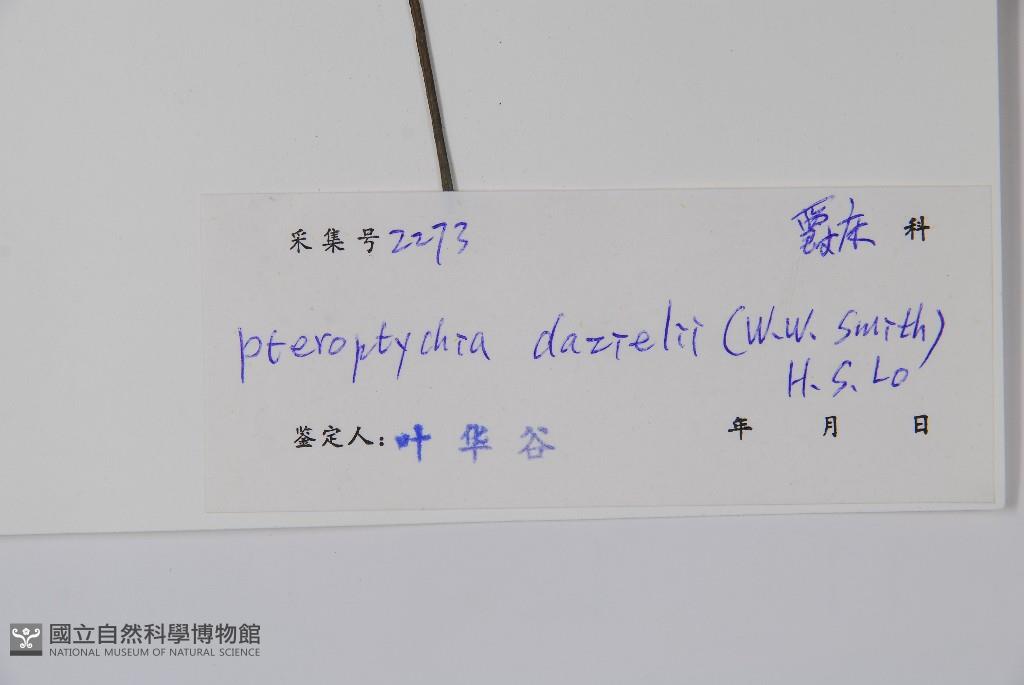 采集号 2273 爵床 科
pteroptychia dazielii (W.W. Smith)
H.S. Lo
鉴定人：叶华谷 年 月 日
國立自然科學博物館
NATIONAL MUSEUM OF NATURAL SCIENCE